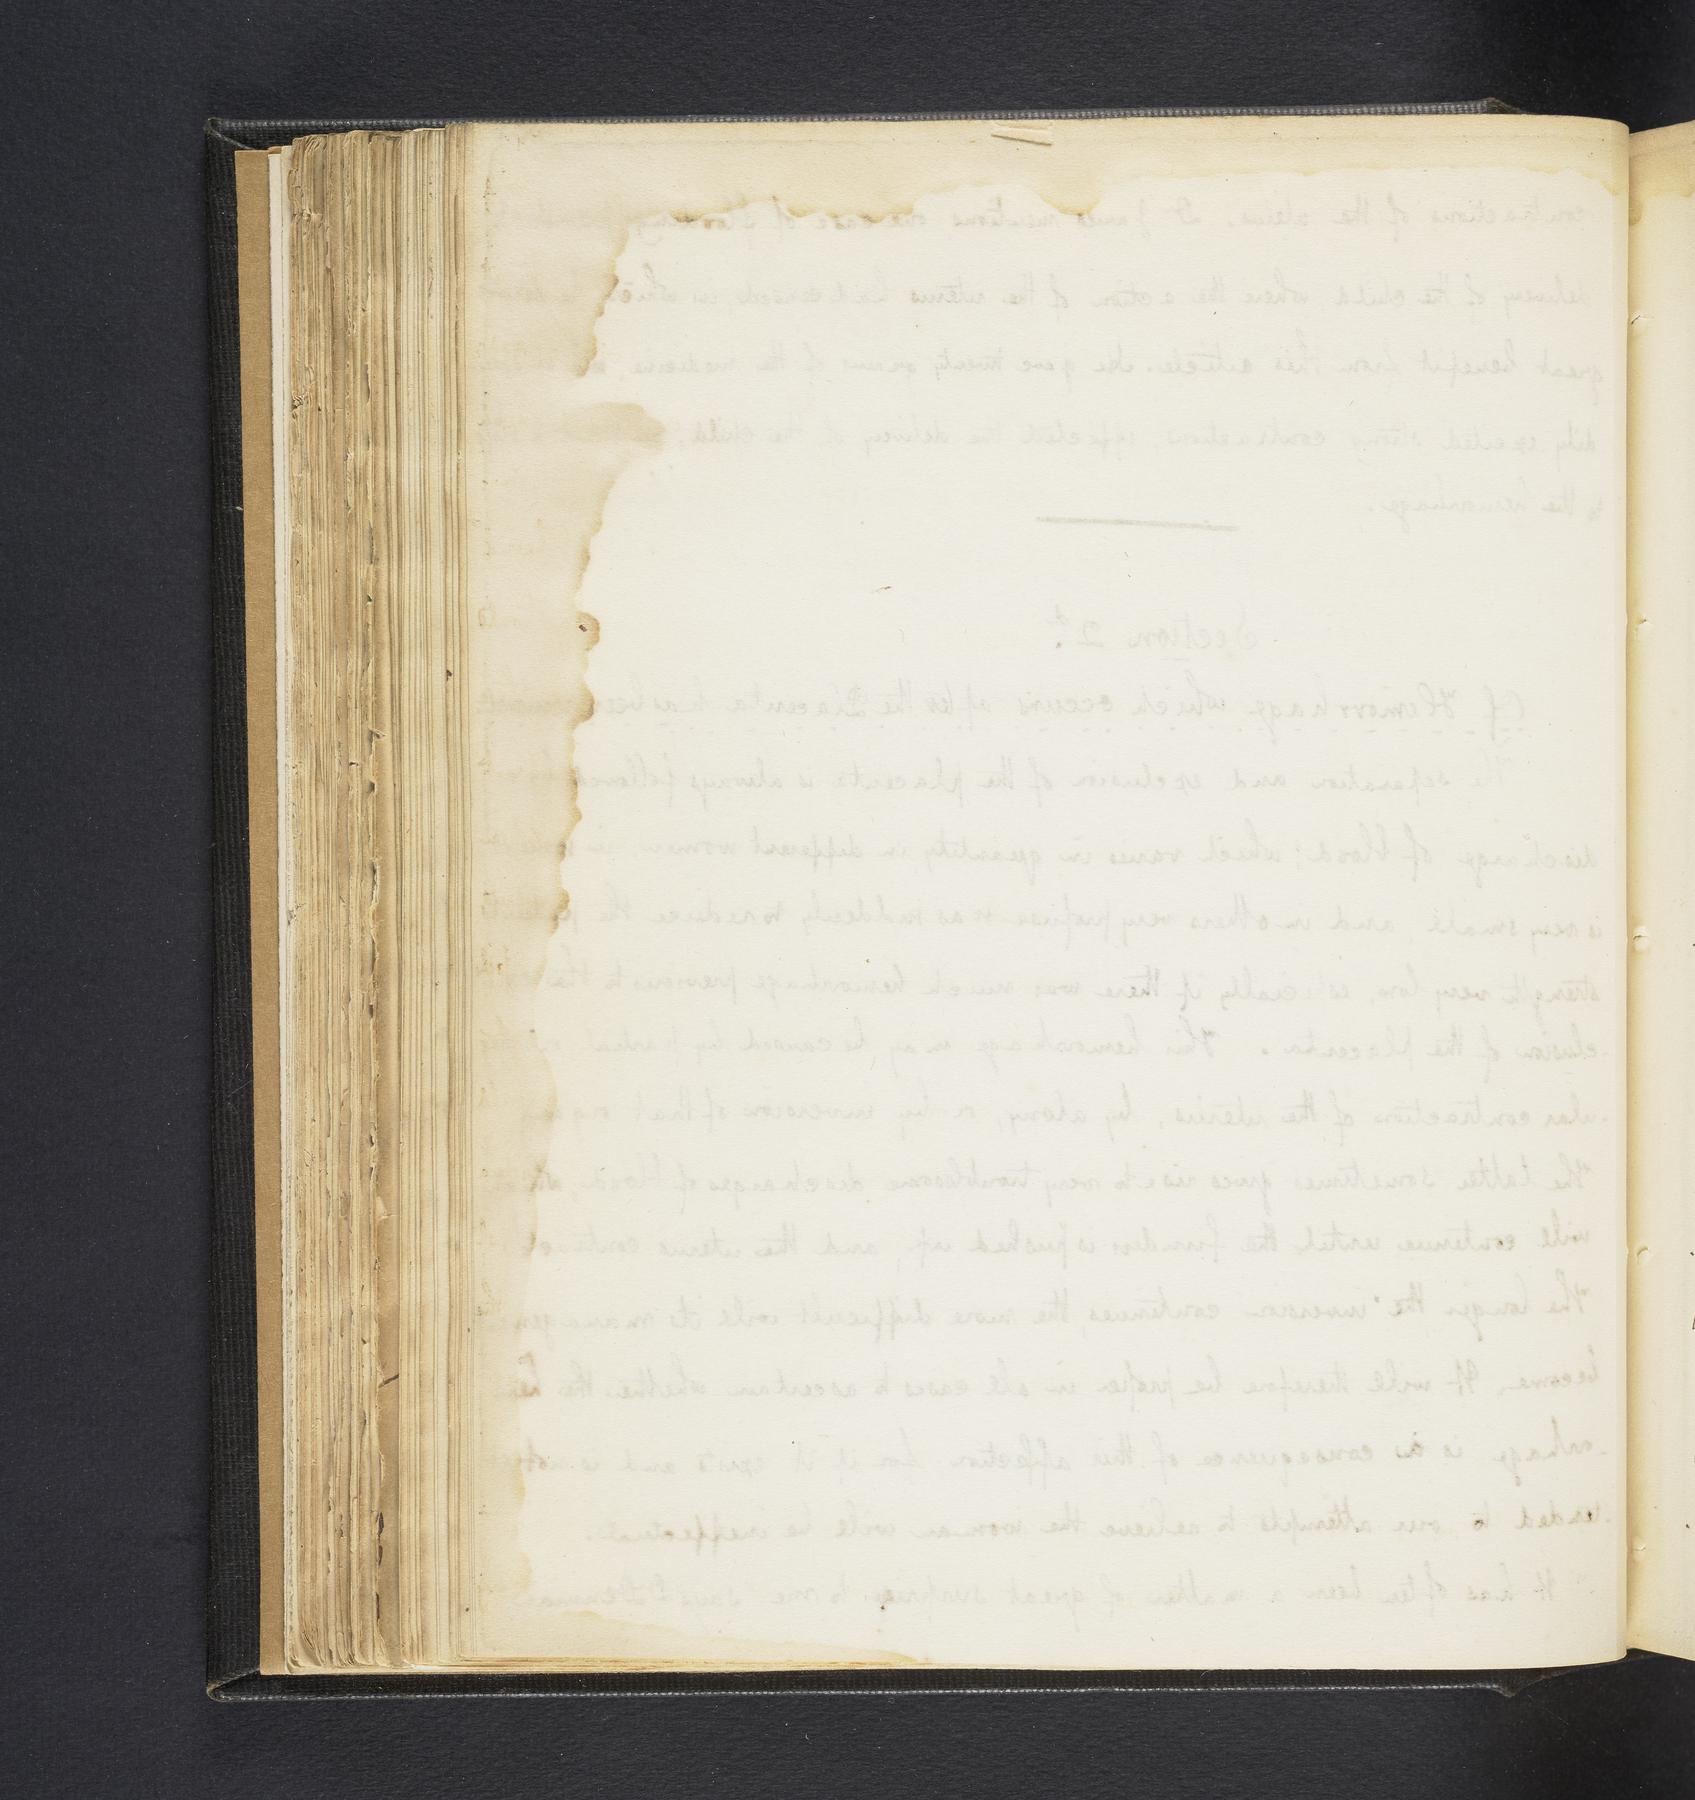 contractions of the uterus. Dr James mentions one case of flooding
delivery of the child where the action of the uterus had ceased, in which
great benefit from this article. He gave twenty grains of the medicine,
dily excited strong contractions, effected the delivery of the child,
to the hemorrhage.
Section 2d.
Of Hemorrhage which occurs after the Placenta has been
The separation and exclusion of the placenta is always followed
discharge of blood; which varies in quantity in different women, in
is very small and in others very profuse so as suddenly to reduce the
strength very low, especially if there was much hemorrhage previous to the
clusion of the placenta. This hemorrhage may be caused by partial
-ular contraction of the uterus, by atony, or by inversion of that organ
The latter sometimes gives rise to very troublesome discharges of blood,
will continue until the fundus is pushed up, and the uterus contract
The longer the inversion continues the more difficult will its management
become, It will therefore be proper in all cases to ascertain whether the
-orrhage is in consequence of this affection for if it exists and is not
-tended to, our attempts to relieve the woman will be ineffectual.
It has often been a matter of great surprise to me says Dr Denman